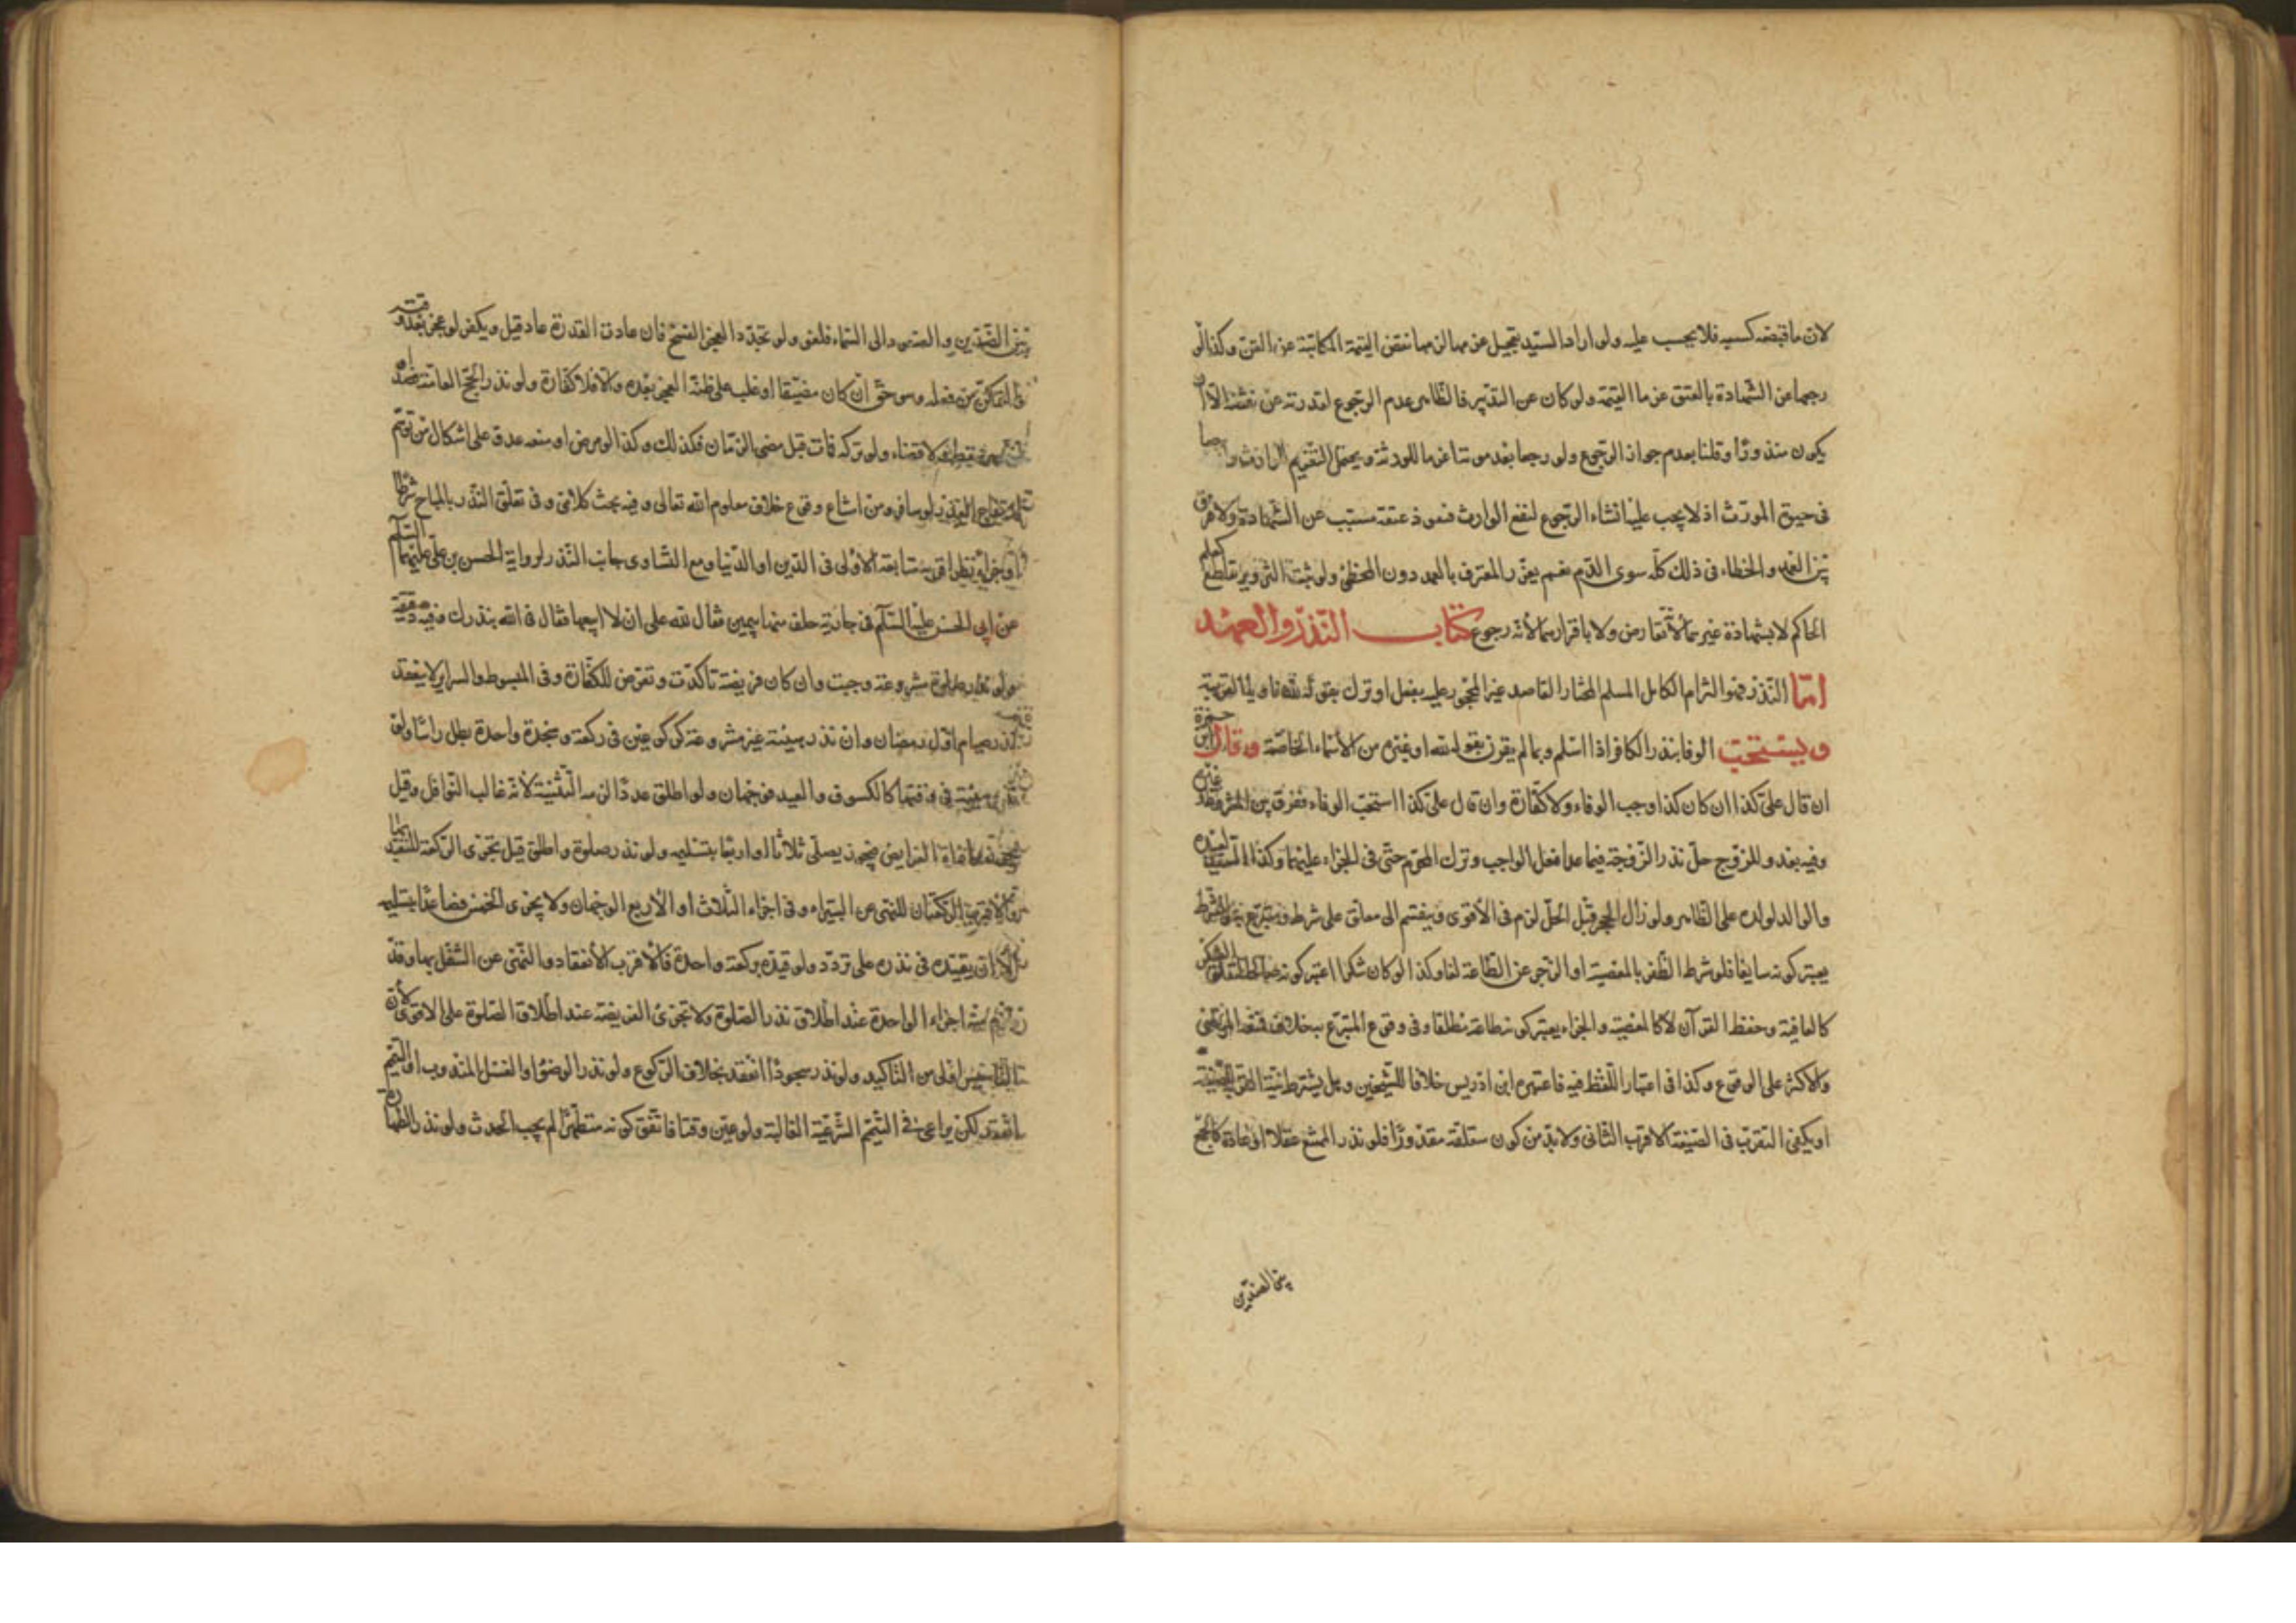 لان ما قبضه كسبه فلا يجب عليه ولو اراد السيد تعجيل عزمهما لزمهما نقص القيمة المكاتبة عن القن وكذا لو
رجعا عن الشهادة بالعتق غرما القيمة ولو كان عن التدبير فالظاهر عدم الرجوع لقدرته عن نقضه الا ان
يكون منذورا وقلنا بعدم جواز الرجوع ولو رجعا بعد موته غرما للورثة ويحتمل التغريم الوارث
فى حيوة المورث اذ لا يجب عليه انشاء الرجوع لنفع الوارث فنفوذ عتقه مسبب عن الشهادة ولا فرق
بين العمد والخطاء فى ذلك كله سوى الدم نعم يعزر المعترف بالعمد دون المخطئ ولو ثبت التزوير بقاطع كعلم
الحاكم لا بشهادة غيرهما لانه تعارض ولا باقرارهما لانه رجوع كتاب النذر والعهد
اما النذر فهو التزام الكامل المسلم المختار القاصد غير المحجور عليه بفعل او ترك بقوله لله ناويا القربة
ويستحب الوفا بنذر الكافر اذا اسلم وبما لم يقرن بقوله لله او غيره من الأسماء الخاصة وقال ابن حمزة
ان قال على كذا ان كان كذا وجب الوفاء ولا كفارة وان قال على كذا استحب الوفاء ففرق بين المشروط وغيره
وفيه بعد وللزوج حل نذر الزوجة فيما عدا فعل الواجب وترك المحرم حتى فى الجزاء عليهما وكذا السيد لعبده
والوالد لولده على الظاهر ولو زال الحجر قبل الحل لزم فى الأقوى وينقسم الى معلق على شرط ومتبرع به والشرط
يعتبر كونه سايغا فلو شرط الظفر بالمعصية او الزجر عن الطاعة لغا وكذا لو كان شكرا اعتبر كونه
كالعافية وحفظ القرآن لا كالمعصية والجزاء يعتبر كونه طاعة مطلقا وفى وقوع المتبرع به خلاف فنفاه المرتضى
والاكثر على الوقوع وكذا فى اعتبار اللفظ فيه فاعتبره ابن ادريس خلافا للشيخين وهل يشترط نية القربة
او يكفى التقرب فى الصيغة الاقرب الثانى ولا بد من كون متعلقه مقدورا فلو نذر الممتنع عقلا او عادة كالجمع
بين الضدين
بين الضدين والصعود الى السماء فلغو ولو تجدد العجز انفسخ فان عادت القدرة عاد قيل ويكفر لو عجز بعد وقته
والتمكن من فعله وهو حق ان كان مضيقا او غلب على ظنه العجز بعده والا فلا كفارة ولو نذر الحج العامه
لا قضاء ولو تركه فات قبل مضى الزمان فكذلك وكذا لو مرض او منعه عدو على اشكال من توهم
لو سافر ومن امتناع وقوع خلاف معلوم الله تعالى وفيه بحث كلامى وفى تعلق النذر بالمباح شرطا
او جزاء نظر اقربه متابعة الأولى فى الدين او الدنيا ومع التساوى جانب النذر لرواية الحسن بن على عليهما السلم
عن ابى الحسن عليه السلم فى جارية حلف منها بيمين فقال لله على ان لا ابيعها فقال ف لله بنذرك وفيه دقيقة
ولو نذر صلوة مشروعة وجبت وان كان فريضة تاكدت وتعرض للكفارة وفى المبسوط والسراير لا ينعقد
نذر صيام اول رمضان وان نذر هيئة غير مشروعة كركوعين فى ركعة وسجدة واحدة بطل راسا ولو
نذر هيئة فى وقتها كالكسوف والعيد فوجهان ولو اطلق عددا لزمه التثنية لأنه غالب النوافل وقيل
محاذاة الفرايض فيجوز يصلى ثلاثا او اربعا بتسليمه ولو نذر صلوة واطلق قيل تجزى الركعة للتعبد بها
والاقرب الركعتان للنهى عن البتيراء وفى اجزاء الثلاث او الأربع الوجهان ولا يجزى الخمس فصاعدا بتسليمه
الا ان يقيده فى نذره على تردد ولو قيده بركعة واحدة فالأقرب الأنعقاد والنهى عن التنفل بها وقد
اجزاء الواحدة عند اطلاق نذر الصلوة ولا تجزى الفريضة عند اطلاق الصلوة على الاقوى لأن
التاسيس اولى من التاكيد ولو نذر سجودا انعقد بخلاف الركوع ولو نذر الوضوء او الغسل المندوب او التيمم
انعقد لكن يراعى فى التيمم الشرعية الغالبة ولو عين وقتا فاتفق كونه متطهرا لم يجب الحدث ولو نذر الطهارة